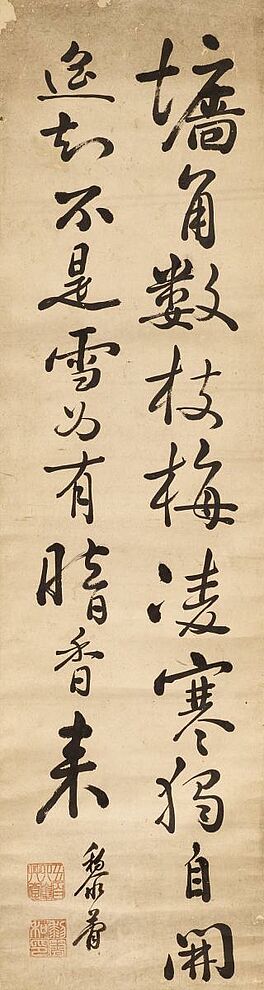 墻角數枝梅凌寒獨自開
遙知不是雪為有暗香来
黎